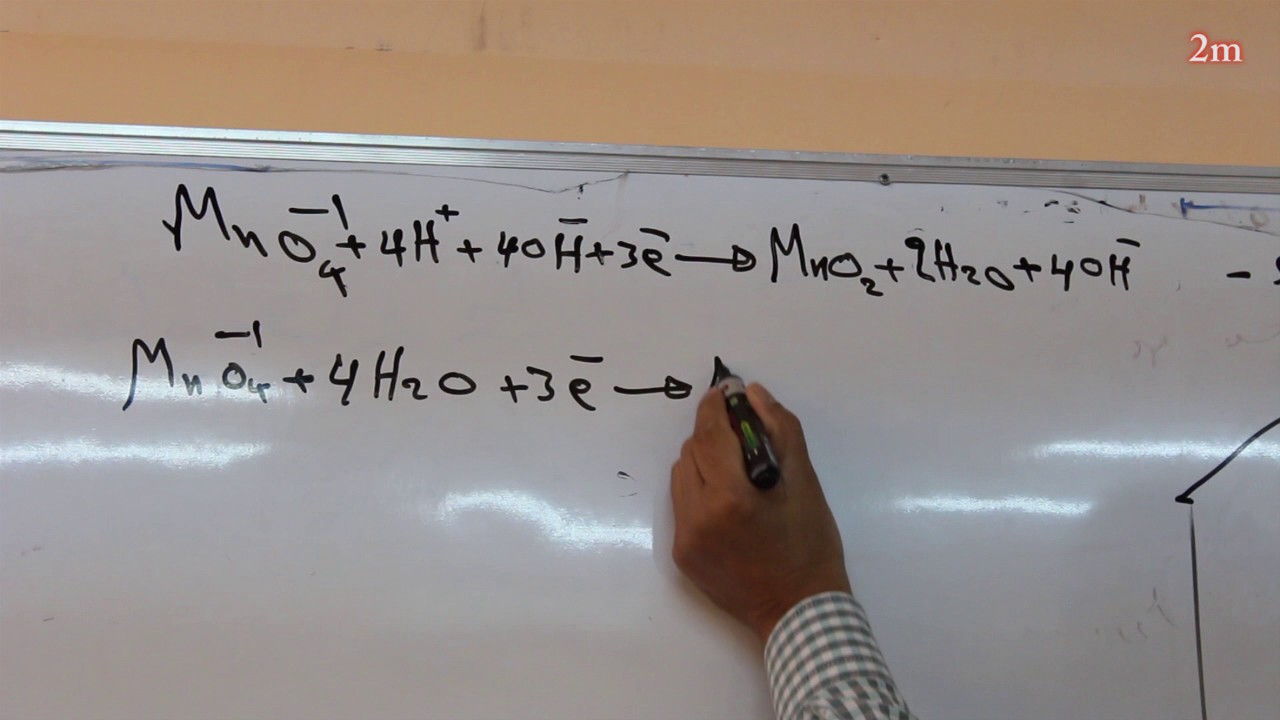 2m
MnO₄⁻¹ + 4H⁺ + 4OH⁻ + 3e⁻ → MnO₂ + 2H₂O + 4OH⁻ -
MnO₄⁻¹ + 4H₂O + 3e⁻ →